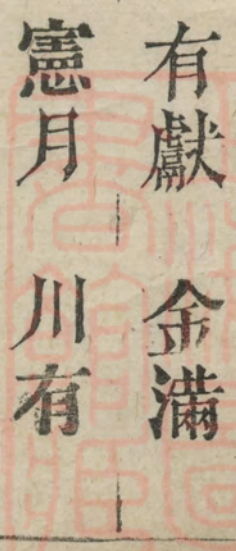 有獻　金滿
憲月　川有